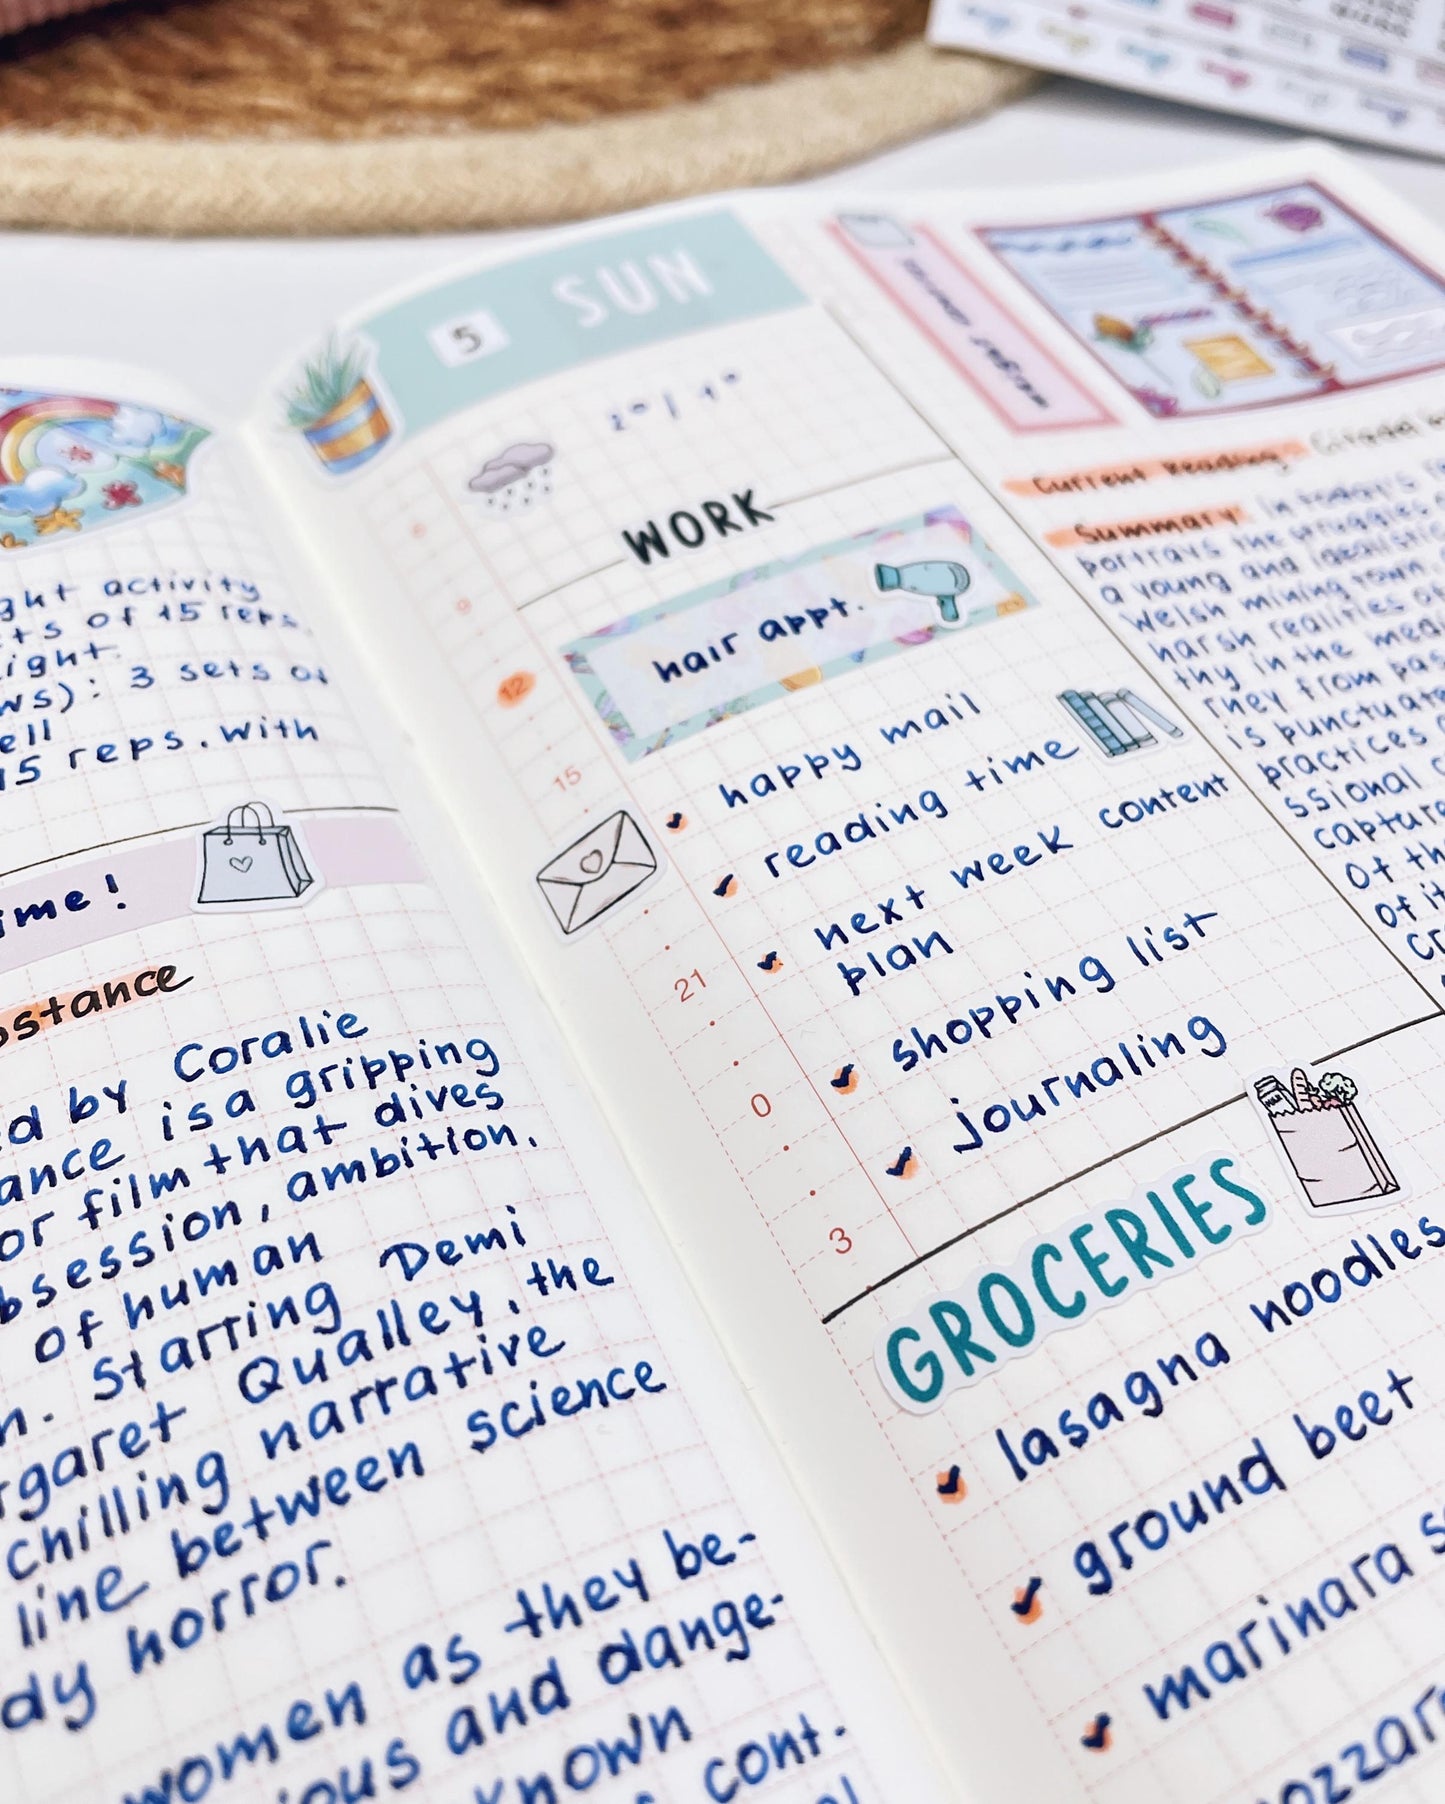 ght activity
ts of 15 reps.
ight.
ws): 3 sets of
ell
15 reps. with
ime!
bstance
ed by Coralie
ance is a gripping
or film that dives
bsession, ambition,
of human
n. Starring Demi
rgaret Qualley, the
chilling narrative
line between science
dy horror.
women as they be-
ious and dange-
known
cont.
5 SUN
WORK
hair appt.
happy mail
reading time
next week content
plan
shopping list
journaling
12
15
21
0
3
GROCERIES
lasagna noodles
ground beet
marinara s
ozzar
Current Reading: Citadel
Summary: In today's
portrays the struggles
a young and idealistic
Welsh mining town.
harsh realities of
thy in the med
rney from pas
is punctuate
practices
ssional
capture
of th
of it